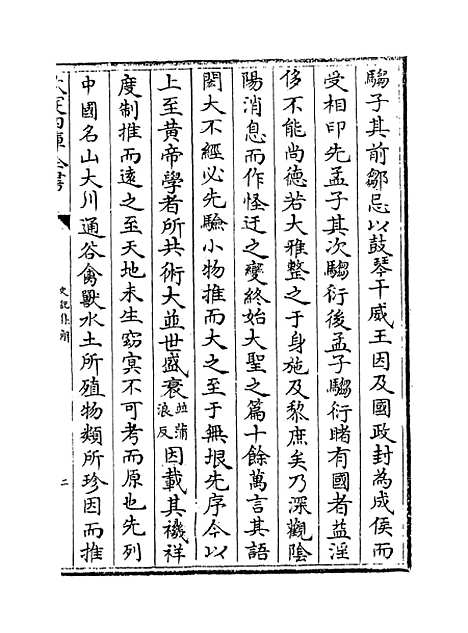 騶子其前鄒忌以鼓琴干威王因及國政封為成侯而
受相印先孟子其次騶衍後孟子騶衍睹有國者益淫
侈不能尚德若大雅整之于身施及黎庶矣乃深觀陰
陽消息而作怪迂之變終始大聖之篇十餘萬言其語
閎大不經必先驗小物推而大之至于無垠先序今以
上至黄帝學者所共術大並世盛衰並蒲浪反因載其禨祥
度制推而遠之至天地未生窈冥不可考而原也先列
中國名山大川通谷禽獸水土所殖物類所珍因而推
史記
二